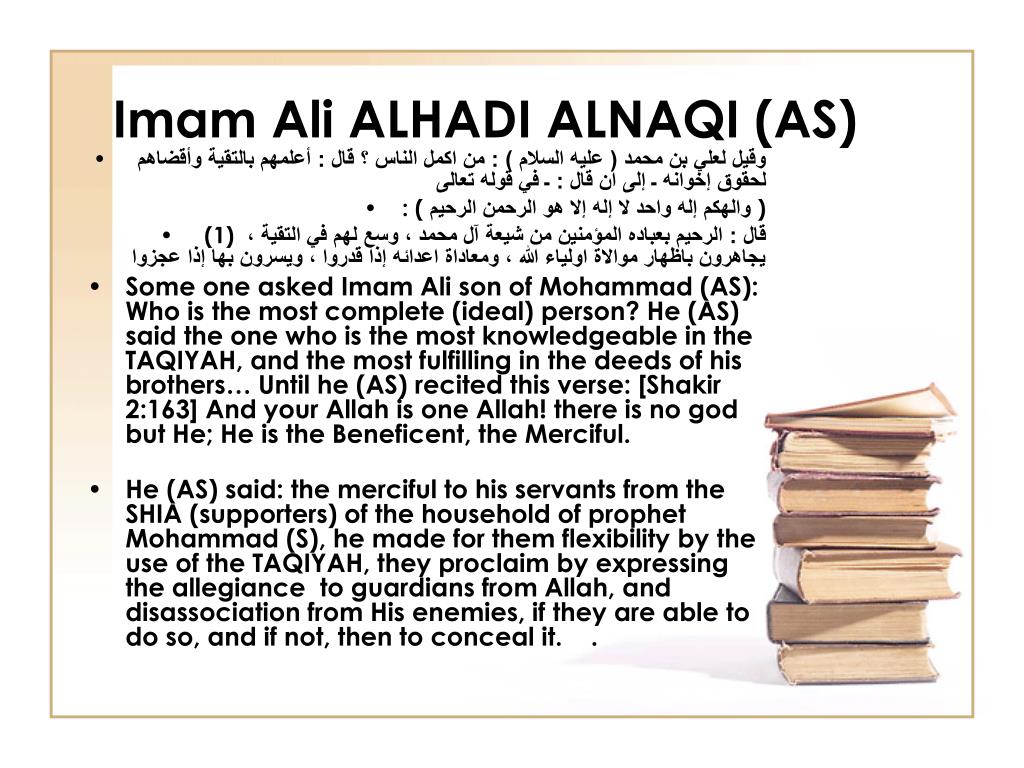 Imam Ali ALHADI ALNAQI (AS)
• وقيل لعلي بن محمد ( عليه السلام ) : من اكمل الناس ؟ قال : أعلمهم بالتقية وأقضاهم
لحقوق إخوانه ـ إلى ان قال : ـ في قوله تعالى
• ( والهكم إله واحد لا إله إلا هو الرحمن الرحيم ) :
• قال : الرحيم بعباده المؤمنين من شيعة آل محمد ، وسع لهم في التقية ، (1)
يجاهرون باظهار موالاة اولياء الله ، ومعاداة اعدائه إذا قدروا ، ويسرون بها إذا عجزوا
• Some one asked Imam Ali son of Mohammad (AS):
Who is the most complete (ideal) person? He (AS)
said the one who is the most knowledgeable in the
TAQIYAH, and the most fulfilling in the deeds of his
brothers… Until he (AS) recited this verse: [Shakir
2:163] And your Allah is one Allah! there is no god
but He; He is the Beneficent, the Merciful.
• He (AS) said: the merciful to his servants from the
SHIA (supporters) of the household of prophet
Mohammad (S), he made for them flexibility by the
use of the TAQIYAH, they proclaim by expressing
the allegiance to guardians from Allah, and
disassociation from His enemies, if they are able to
do so, and if not, then to conceal it. .